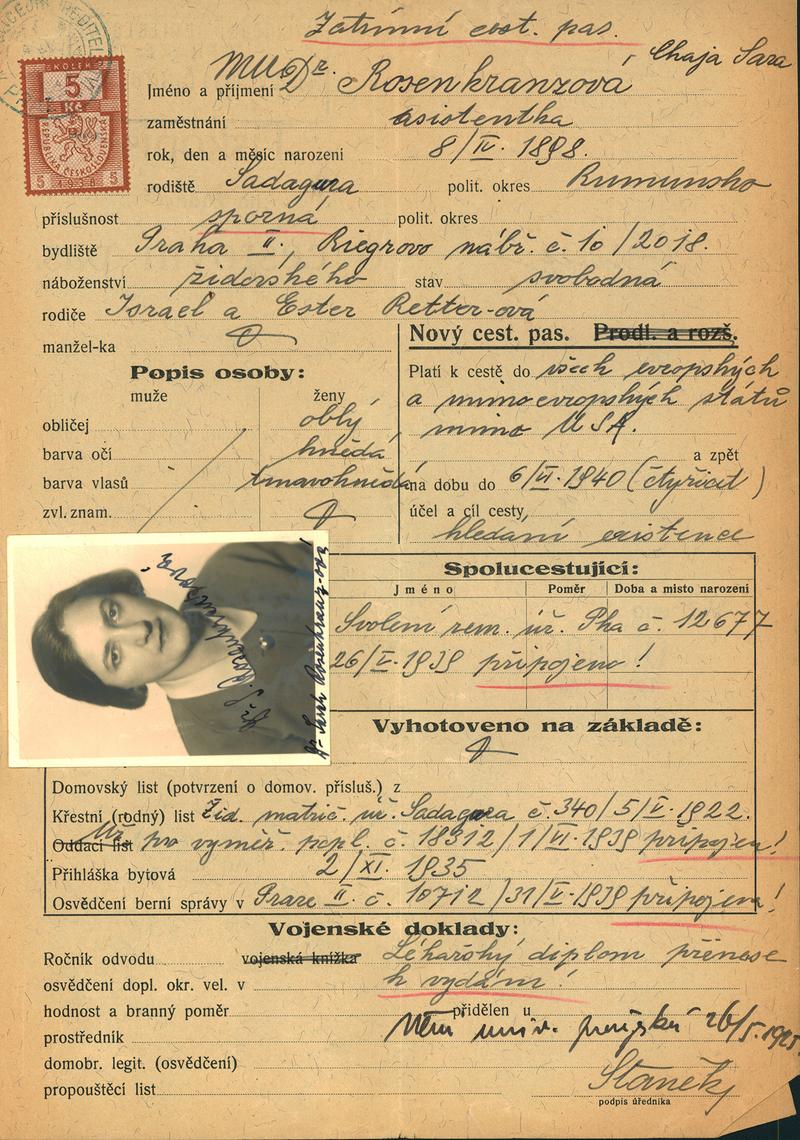 Zatímní cest. pas.
KOLEK
5
Kč
REPUBLIKA ČESKOSLOVENSKÁ
5 1938 5
Chaja Sara
Jméno a příjmení MUDr. Rosenkranzova
zaměstnání asistentka
rok, den a měsíc narození 8/IV. 1898.
rodiště Sadagura polit. okres Rumunsko
příslušnost sporná polit. okres
bydliště Praha II., Riegrovo nábř. č. 10/2018.
náboženství židovského stav svobodná
rodiče Israel a Ester Retter-ová
manžel-ka
Nový cest. pas. Prodl. a rozš.
Popis osoby:
muže ženy
Platí k cestě do všech evropských
a mimoevropských států
mimo USA.
a zpět
obličej oblý
barva očí hnědá
barva vlasů tmavohnědá
zvl. znam.
na dobu do 6/VI. 1940 (čtyřicet)
účel a cíl cesty
hledání existence
Spolucestující:
Jméno Poměr Doba a místo narození
Svolení zem. úř. Pha č. 12677
26/V. 1939 připojeno!
Dr. Sara Rosenkranz-ová
Vyhotoveno na základě:
Domovský list (potvrzení o domov. přísluš.) z
Křestní (rodný) list Žid. matrič. úř. Sadagura č. 340/5/V. 1922.
Oddací list Úř. pro vyměř. popl. č. 18312/1/VI. 1939 připojen!
Přihláška bytová 2/XI. 1935
Osvědčení berní správy v Praze II. č. 10712/31/V. 1939 připojen!
Vojenské doklady:
Ročník odvodu vojenská knížka Lékařský diplom přinese
osvědčení dopl. okr. vel. v k vydání!
hodnost a branný poměr přidělen u
prostředník Něm. univ. pražská 26/5. 1925.
domobr. legit. (osvědčení)
propouštěcí list Staněk
podpis úředníka